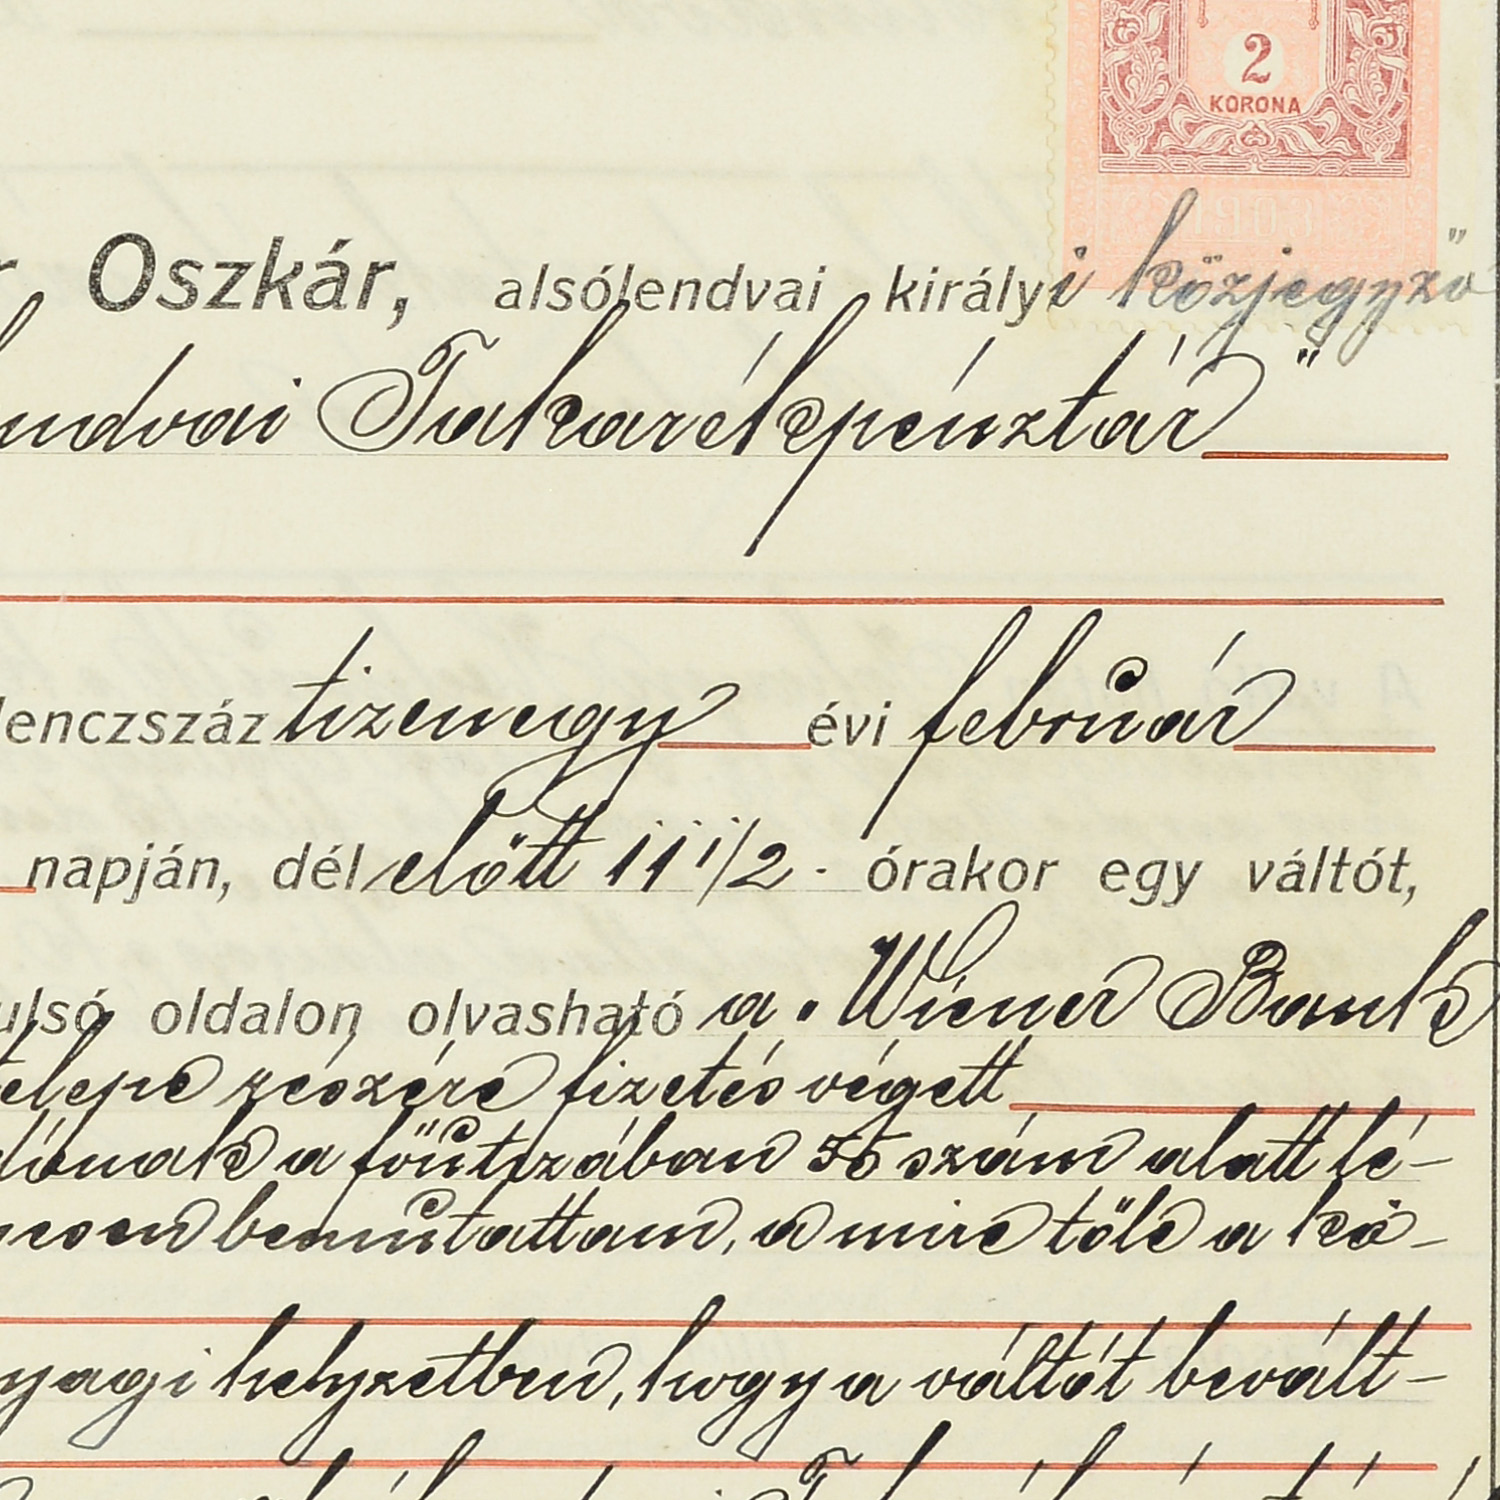 2
KORONA
Oszkár, alsólendvai királyi közjegyző
Takarékpénztár"
tizenegy évi február
napján, dél előtt 11 1/2 · órakor egy váltót,
oldalon olvasható a „Wiener Bank
telepe részére fizetés végett
a főútczában 56 szám alatt lé-
bemutattam, a mire tőle a kö-
helyzetben, hogy a váltót bevált-